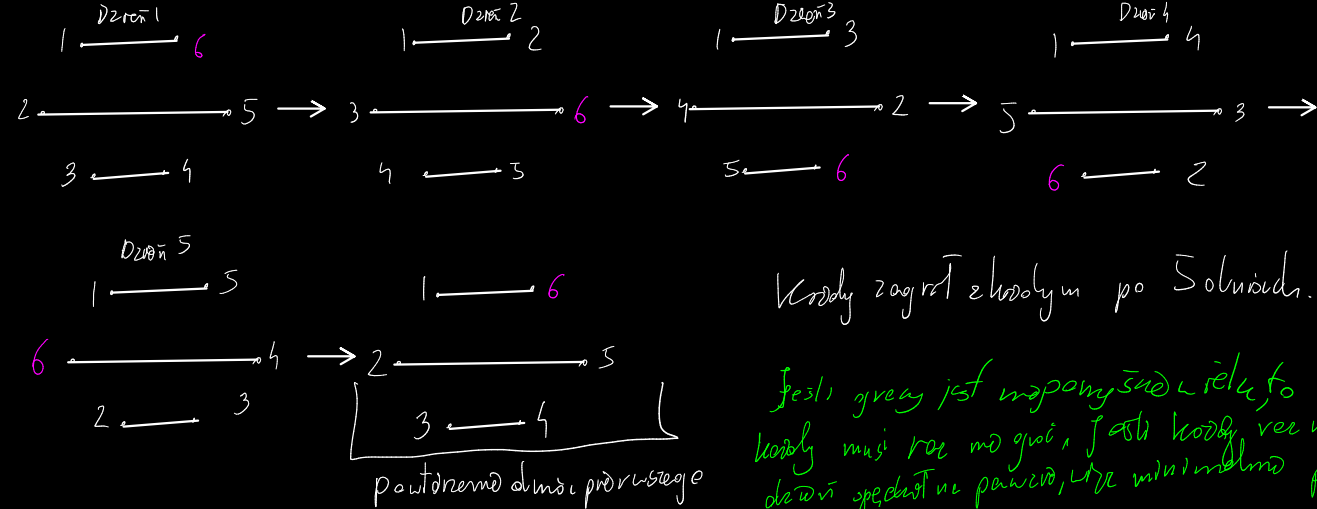 Dzień 1 Dzień 2 Dzień 3 Dzień 4
1 6 1 2 1 3 1 4
2 5 3 6 4 2 5 3
3 4 4 5 5 6 6 2
Dzień 5
1 5 1 6
6 4 2 5
2 3 3 4
powtórzenie dnia pierwszego
Każdy zagrał z każdym po 5 dniach.
Jeśli graczy jest nieparzyście wielu, to
każdy musi raz nie grać, jeśli każdy raz
dzień spędzał na, więc minimalnie